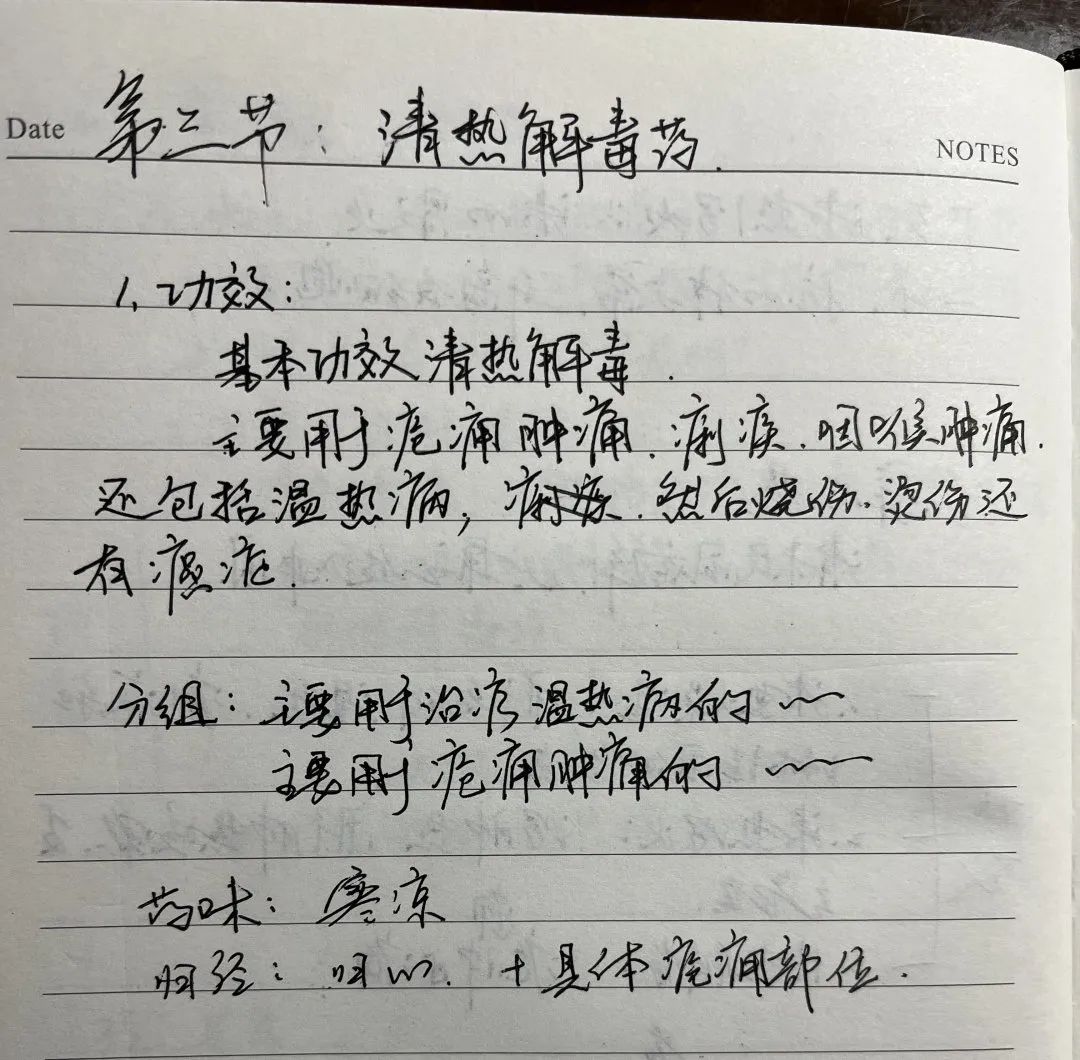 Date 第三节：清热解毒药. NOTES
1、功效：
基本功效清热解毒.
主要用于疮痈肿痛.痢疾.咽喉肿痛.
还包括温热病，痢疾.然后烧伤.烫伤还
有癌症.
分组：主要用于治疗温热病的~~
主要用于疮痈肿痛的~~~
药味：寒凉
归经：归心.+具体疮痈部位.